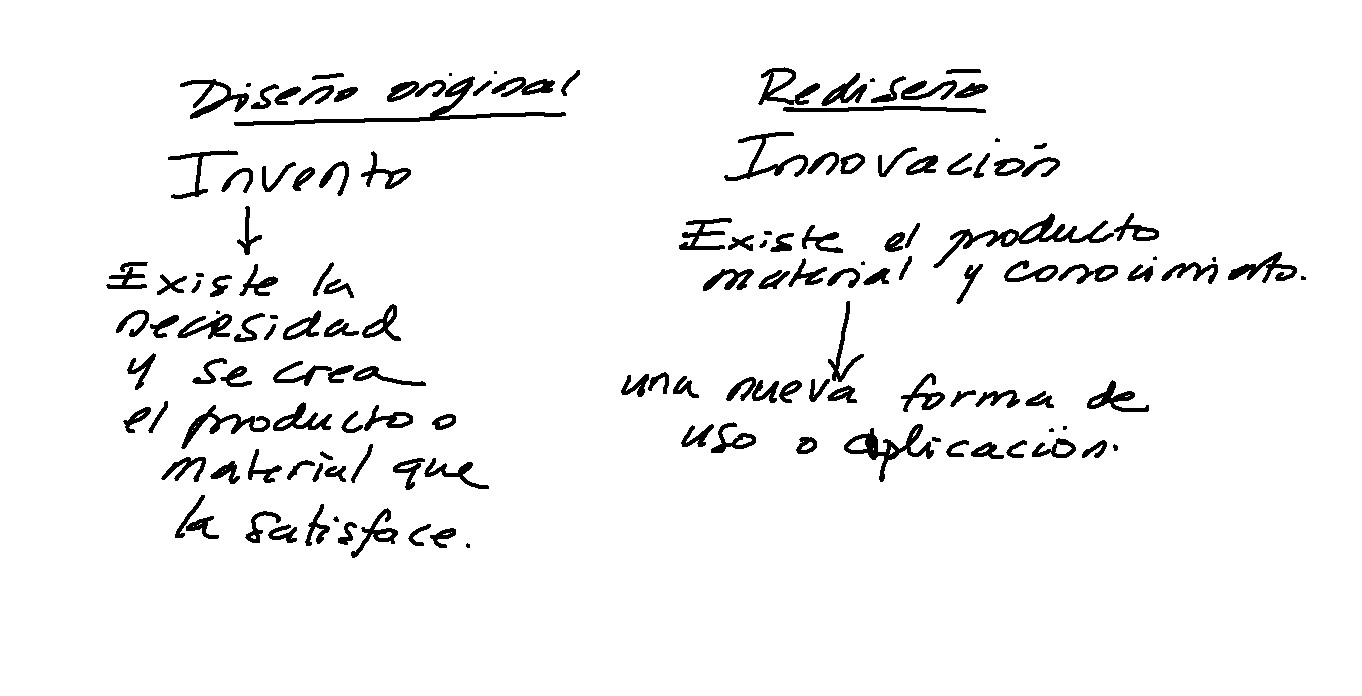 Diseño original
Invento
Existe la
necesidad
y se crea
el producto o
material que
la satisface.
Rediseño
Innovación
Existe el producto
material y conocimiento.
una nueva forma de
uso o aplicación.